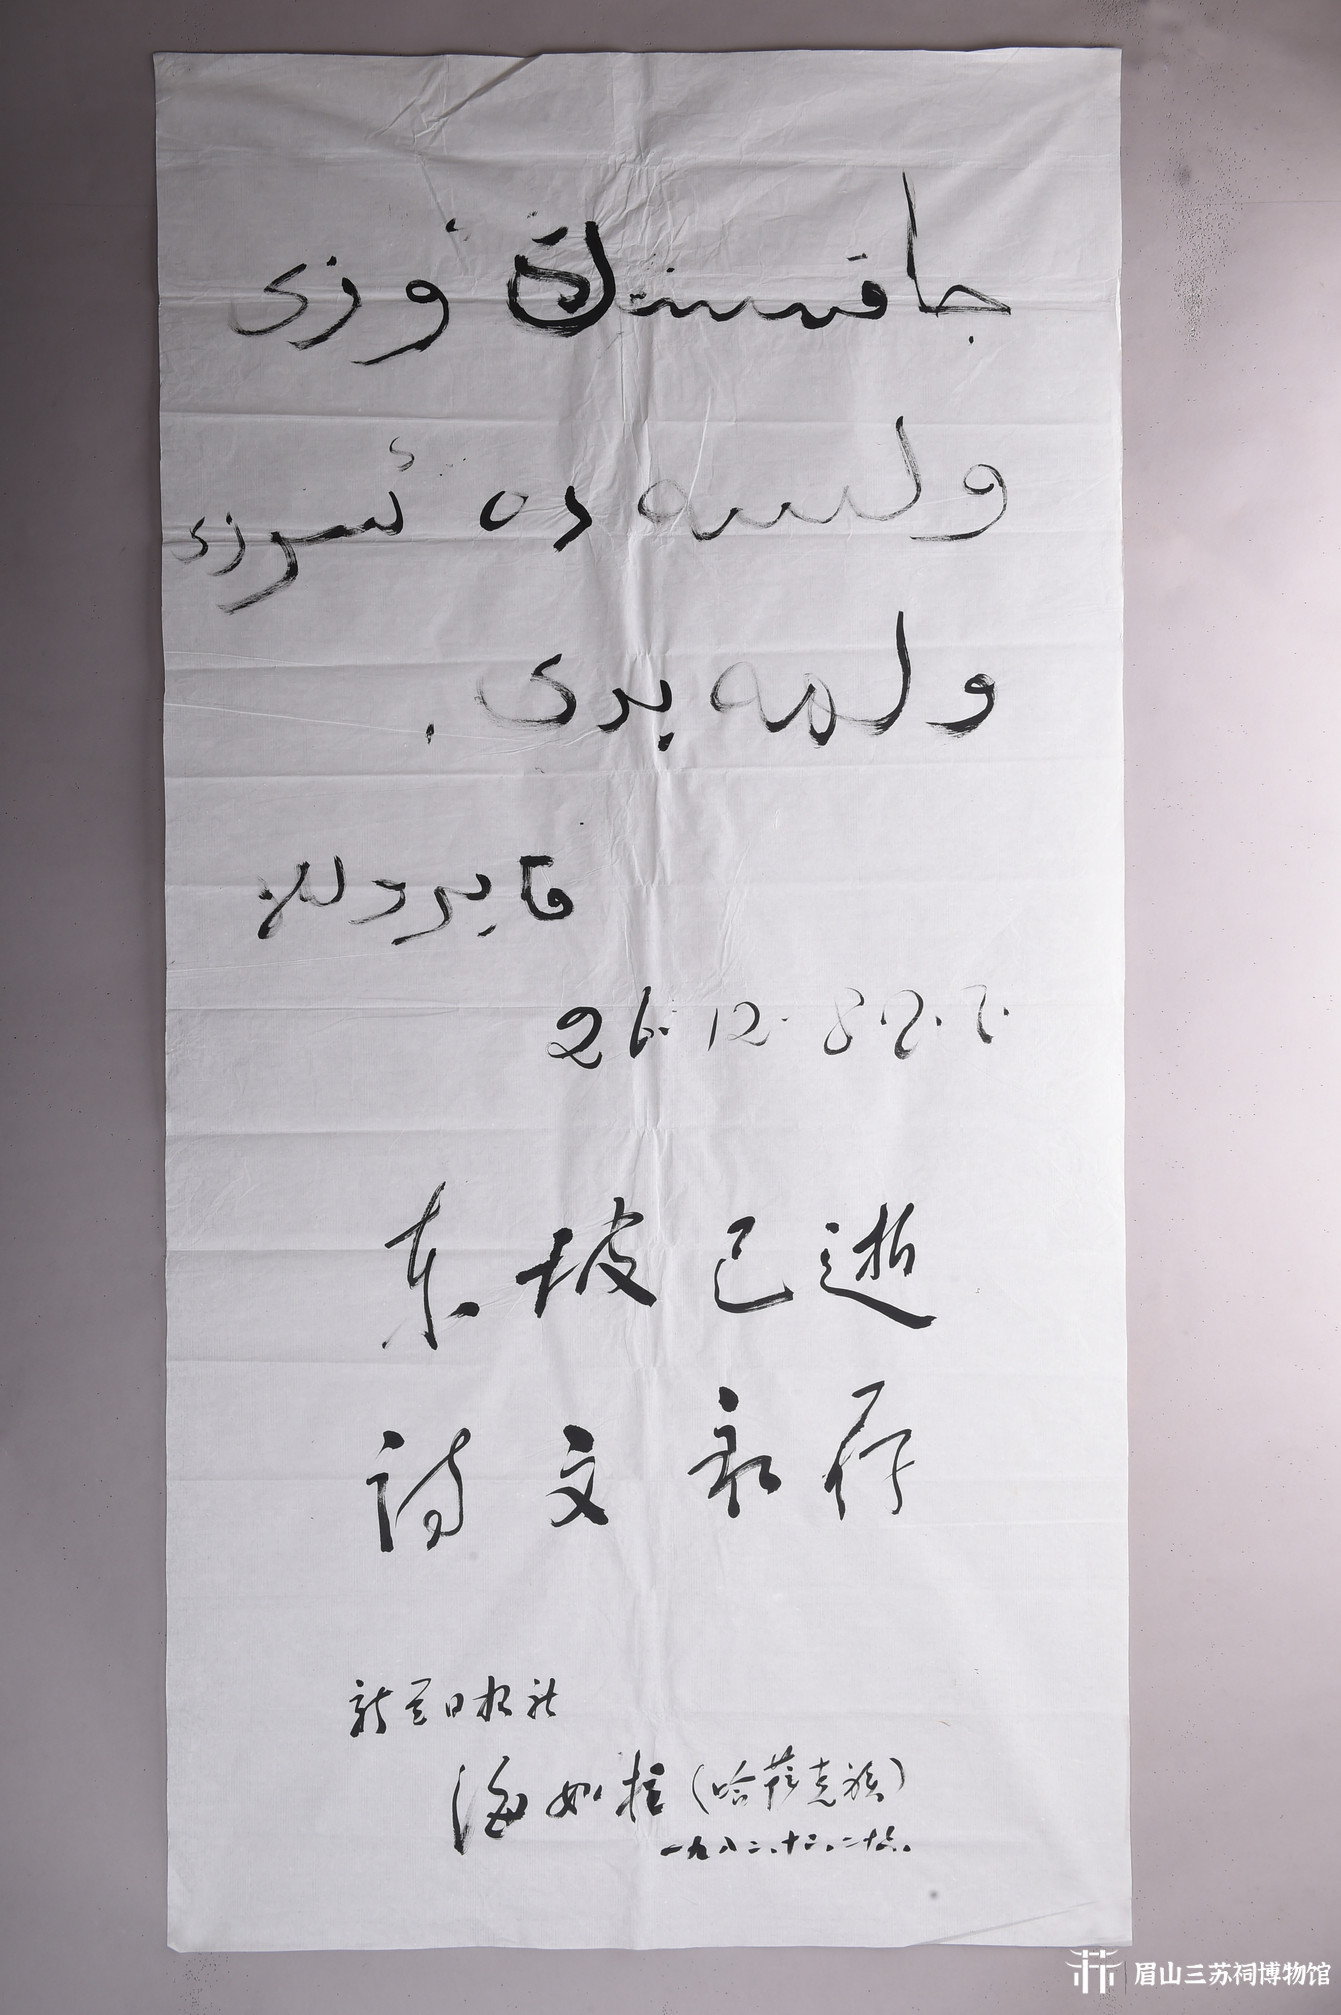 جاقسىنىڭ ٴوزى
ولسە دە ٴسوزى
ولمەيدى .
قايروللا
26.12.82.
东坡已逝
诗文永存
新疆日报社
海如拉（哈萨克族）
一九八二、十二、二十六。
眉山三苏祠博物馆